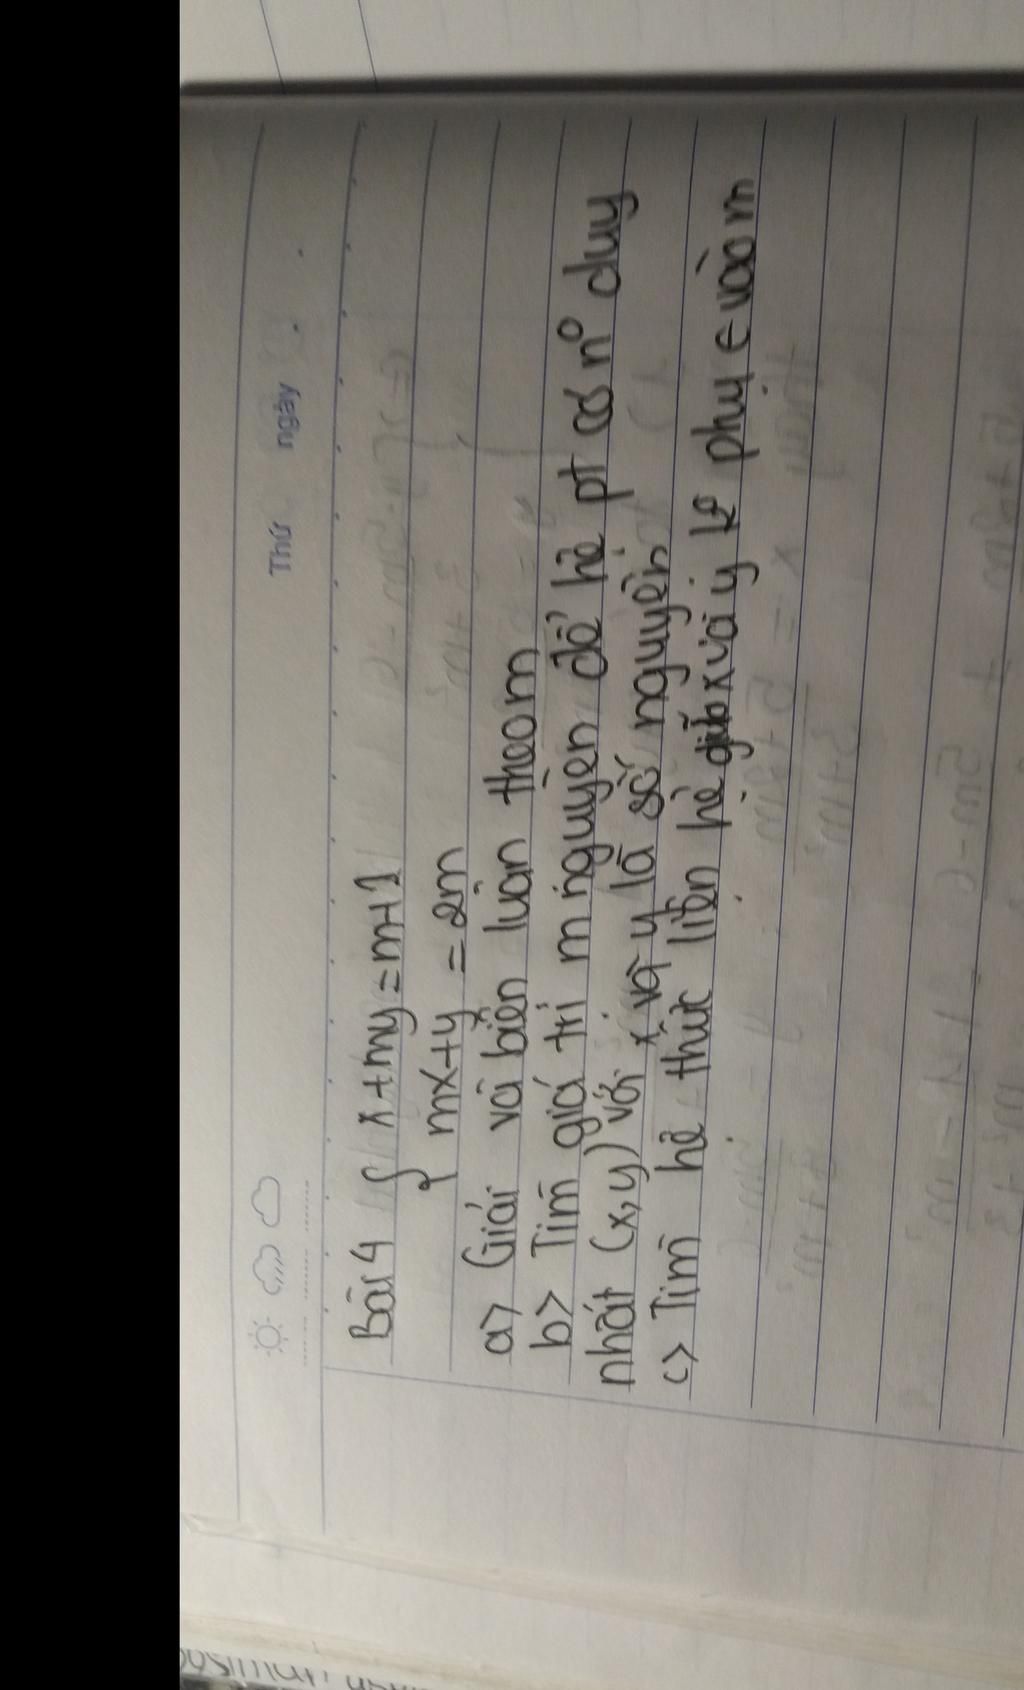 Thứ ngày
Bài 4 { x + my = m+1
mx+y = 2m
a> Giải và biện luận theo m
b> Tìm giá trị m nguyên để hệ pt có nº duy
nhất (x,y) với x và y là số nguyên
c> Tìm hệ thức liên hệ giữa x và y kº phụ ∈ vào m